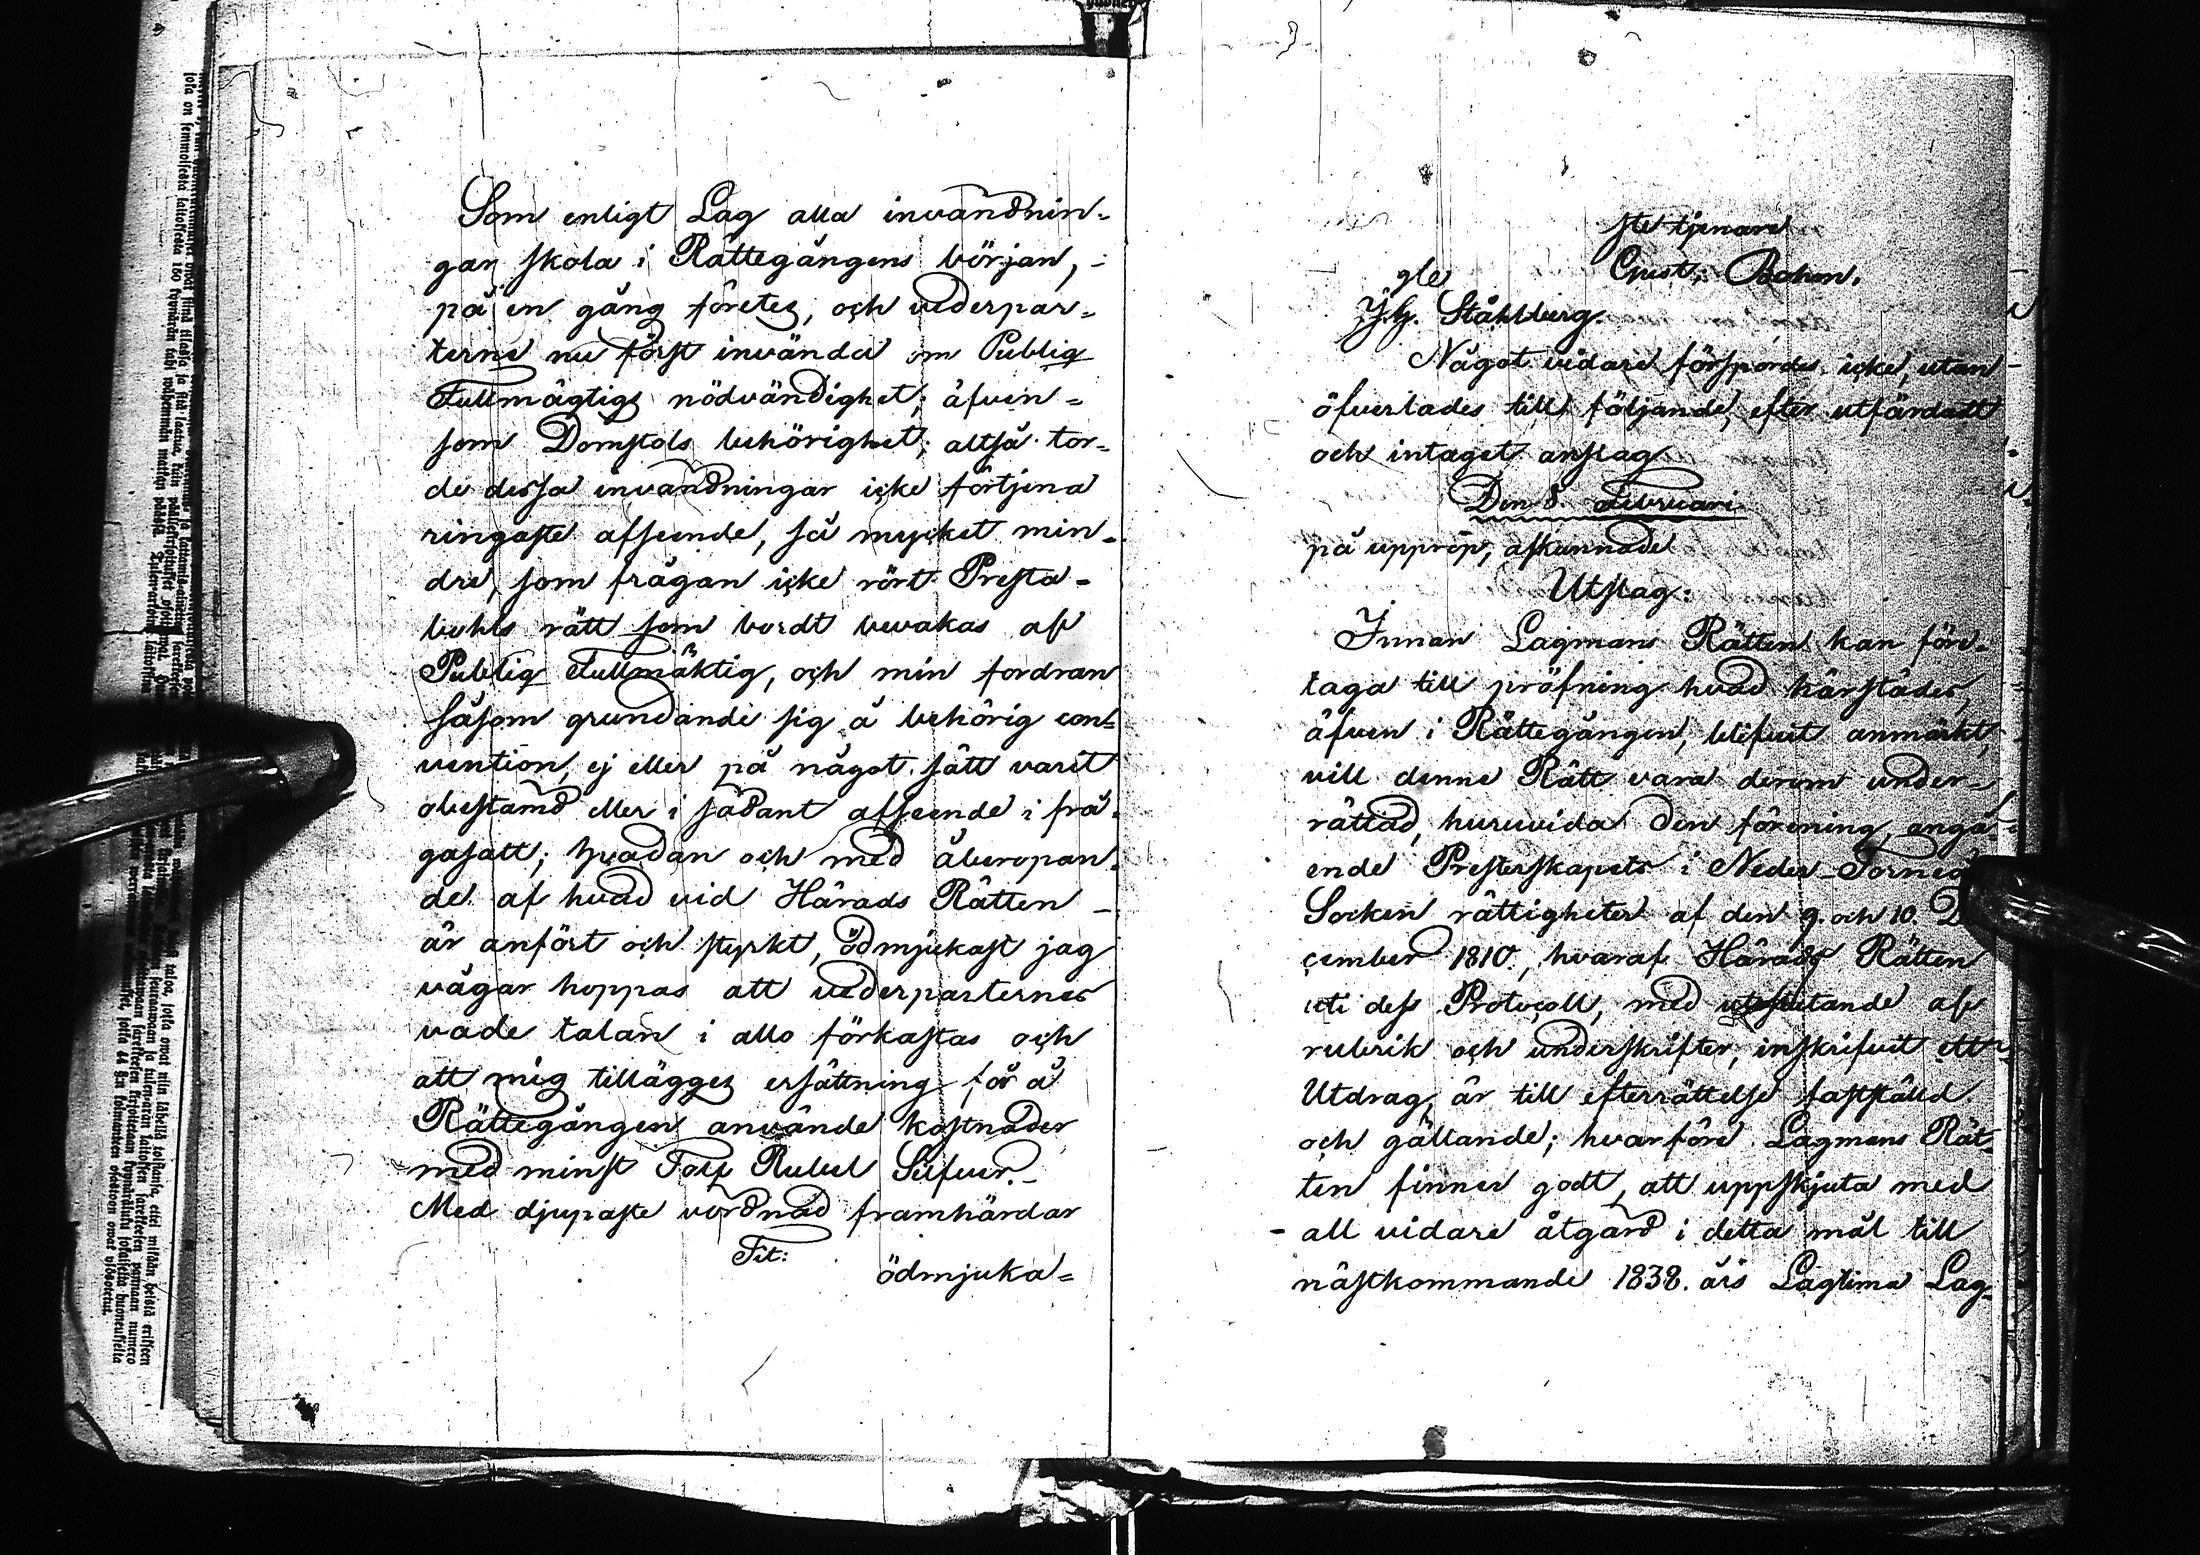 Som enligt Lag alla invändnin-
gar skola i Rättegångens början,
på en gång företes, och vederpar-
terne nu först invända om Publiq
Fullmägtigs nödvändighet, äfven-
som Domstols behörighet; altså tor-
de dessa invändningar icke förtjena
ringaste afseende, så mycket min-
dre, som frågan icke rört Presta-
bohls rätt som bordt bevakas af
Publiq Fullmäktig, och min fordran
såsom grundande sig å behörig con-
vention, ej eller på något sätt varit
obestämd eller i sådant afseende i frå-
gasatt; hvadan och med åberopan-
de af hvad vid Härads Rätten
är anfört och styrkt, ödmjukast jag
vågar hoppas att vederparternes
vade talan i allo förkastas och
att mig tillägges ersättning för å
Rättegången använde kostnader
med minst Tolf Rubel Silfver.
Med djupaste vördnad framhärdar
Tit:
ödmjuka-
ste tjenare
Gust. Bohm.
gle
J.G. Ståhlberg.
Något vidare förspordes icke, utan
öfverlades till följande, efter utfärdadt
och intaget anslag
Den 8. Februari
på upprop, afkunnade
Utslag:
Innan Lagmans Rätten kan före-
taga till pröfning hvad härstädes,
äfven i Rättegången, blifvit anmärkt,
vill denne Rätt vara derom under-
rättad, huruvida den förening, angå-
ende Presterskapets i Neder-Torneå
Socken rättigheter af den 9. och 10. De
cember 1810., hvaraf Härads Rätten
uti dess Protocoll, med uteslutande af
rubrik och underskrifter, inskrifvit ett
Utdrag, är till efterrättelse fastställd
och gällande; hvarföre Lagmans Rät-
ten finner godt, att uppskjuta med
all vidare åtgärd i detta mål till
nästkommande 1838. års Lagtima Lag-